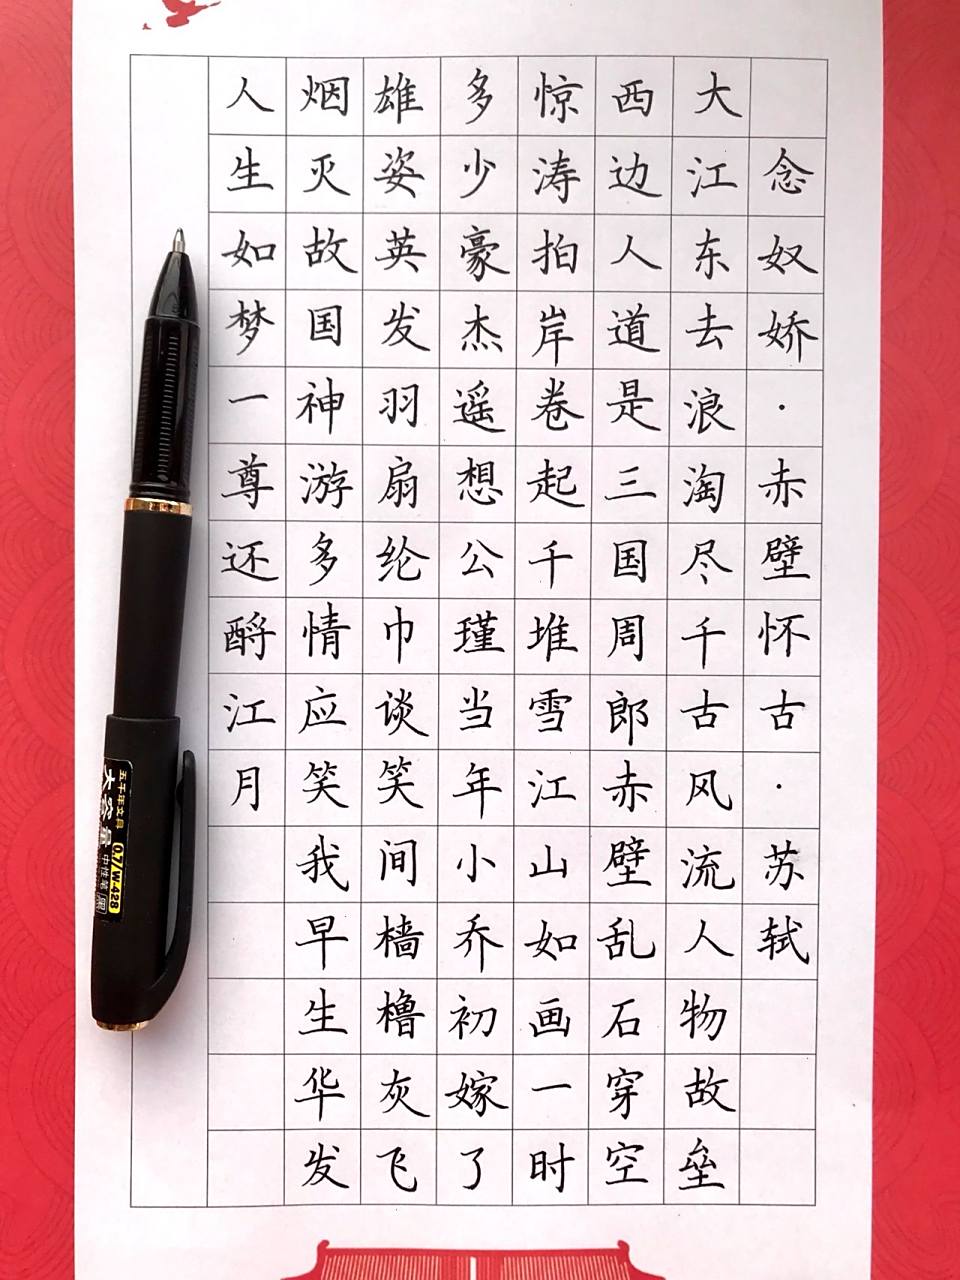 念奴娇·赤壁怀古·苏轼
大江东去浪淘尽千古风流人物故垒
西边人道是三国周郎赤壁乱石穿空
惊涛拍岸卷起千堆雪江山如画一时
多少豪杰遥想公瑾当年小乔初嫁了
雄姿英发羽扇纶巾谈笑间樯橹灰飞
烟灭故国神游多情应笑我早生华发
人生如梦一尊还酹江月
五千年文具
0.7/W-428
中性笔 黑